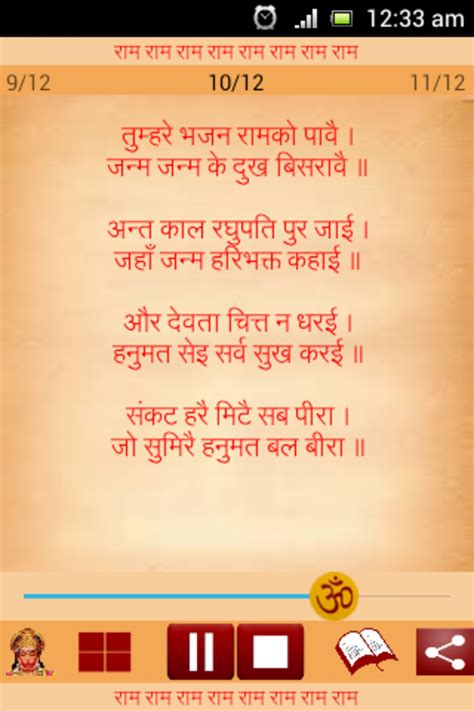 12:33 am
राम राम राम राम राम राम राम राम
9/12 10/12 11/12
तुम्हरे भजन रामको पावै ।
जन्म जन्म के दुख बिसरावै ॥
अन्त काल रघुपति पुर जाई ।
जहाँ जन्म हरिभक्त कहाई ॥
और देवता चित्त न धरई ।
हनुमत सेइ सर्व सुख करई ॥
संकट हरै मिटै सब पीरा ।
जो सुमिरै हनुमत बल बीरा ॥
ॐ
राम राम राम राम राम राम राम राम